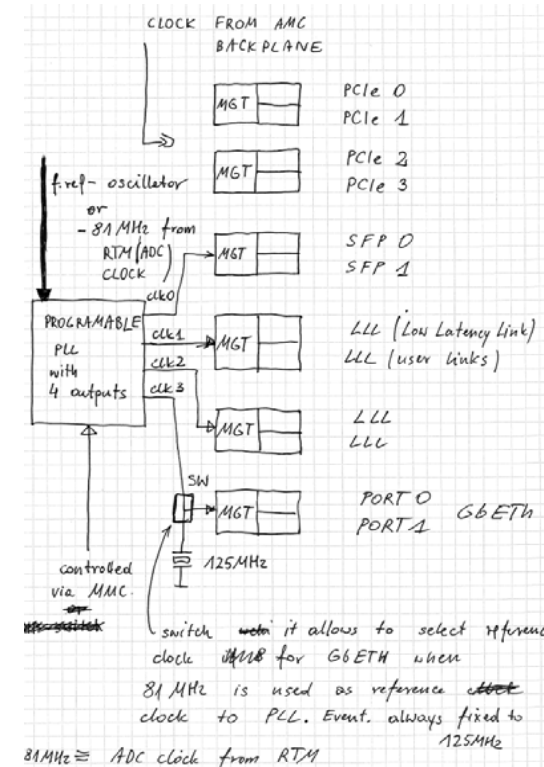 CLOCK FROM AMC
BACKPLANE
MGT
PCIe 0
PCIe 1
MGT
PCIe 2
PCIe 3
f.ref - oscillator
or
- 81 MHz from
RTM (ADC
CLOCK)
MGT
SFP 0
SFP 1
clk0
PROGRAMABLE
PLL
with
4 outputs
clk1
clk2
clk3
MGT
LLL (Low Latency Link)
LLL (user links)
MGT
LLL
LLL
SW
MGT
PORT 0
PORT 1
GbETh
125MHz
controlled
via MMC.
switch it allows to select reference
clock for GbETH when
81 MHz is used as reference
clock to PLL. Event. always fixed to
125MHz
81MHz ≅ ADC clock from RTM